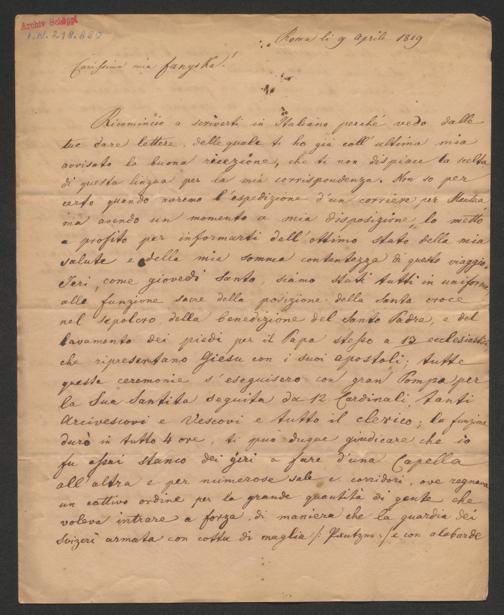 Archiv Schöppl
I.N. 218.680
Roma li 9 Aprile 1819
Carissima mia Fanyska!
Ricomincio a scriverti in Italiano perché vedo dalle
tue care lettere, delle quale ti ho già coll' ultima mia
avvisato la buona ricezione, che ti non dispiace la scelta
di questa lingua per la mia corrispondenza. Non so per
certo quando avremo l'espedizione d'un corriere per
ma avendo un momento a mia disposizione, lo metto
a profito per informarti dell'ottimo stato della mia
salute e della mia somma contentezza di questo viaggio.
Ieri, come giovedì santo, siamo stati tutti in uniforme
alle funzione sacre della posizione della Santa croce
nel sepolcro della benedizione del Santo Padre, e del
lavamento dei piedi per il Papa stesso a 12 ecclesiastici
che ripresentano Giesu con i suoi apostoli; tutte
queste ceremonie s'eseguisero con gran Pompa per
la Sua Santita seguita da 12 Cardinali, tanti
Arcivescovi e Vescovi e tutto il clerico; la funzione
durò in tutto 4 ore, ti puo dunque giudicare che io
fu assai stanco dei jeri a fare d'una Capella
all'altra e per numerose sale e corridori, ove regnava
un cattivo ordine per la grande quantità di gente che
voleva intrare a forza, di maniera che la guardia dei
Svizeri armata con cotta di maglia /: Panzner :/ e con alabarde